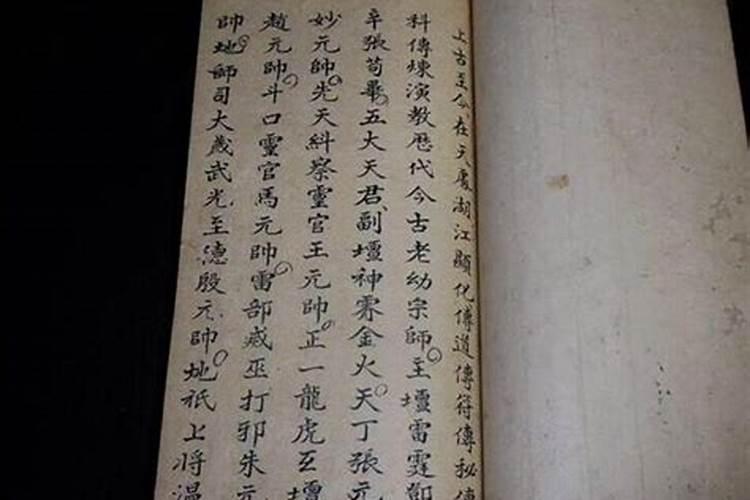 上古至今在天處湖江顯化傳道傳符傳秘傳
科傳煉演教歷代今古老幼宗師主壇雷霆鄧
辛張苟畢五大天君副壇神霄金火天丁張元
妙元帥先天糾察靈官王元帥正一龍虎玄壇
趙元帥斗口靈官馬元帥雷部威巫打邪朱元
帥地師司大歲武光至德殷元帥地祇上將溫